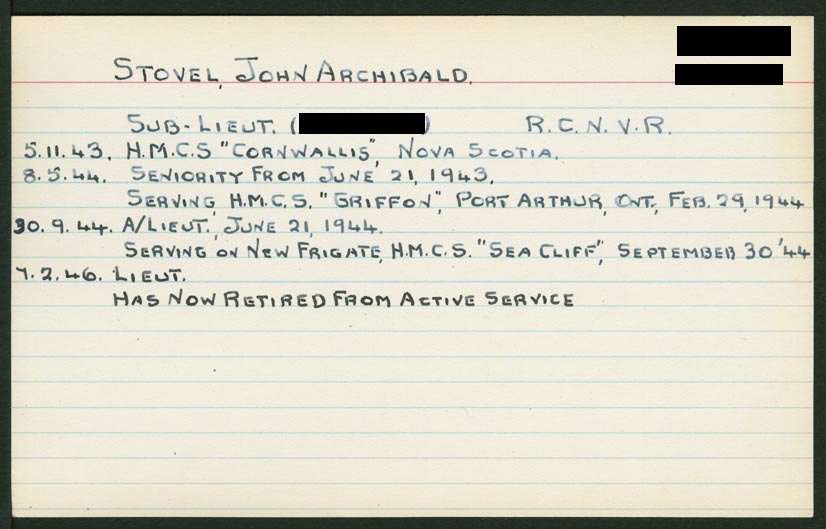 STOVEL, JOHN ARCHIBALD.
SUB-LIEUT. ( ) R.C.N.V.R.
5.11.43. H.M.C.S "CORNWALLIS", NOVA SCOTIA.
8.5.44. SENIORITY FROM JUNE 21, 1943.
SERVING H.M.C.S. "GRIFFON", PORT ARTHUR, ONT, FEB. 29, 1944
30.9.44. A/LIEUT., JUNE 21, 1944.
SERVING ON NEW FRIGATE, H.M.C.S. "SEA CLIFF", SEPTEMBER 30 '44
7.2.46. LIEUT.
HAS NOW RETIRED FROM ACTIVE SERVICE